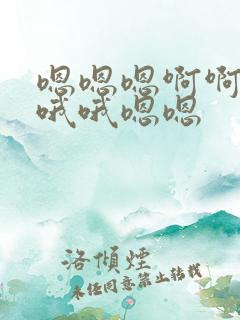 嗯嗯嗯啊啊
哦哦嗯嗯
洛傾煙
未经同意禁止转载